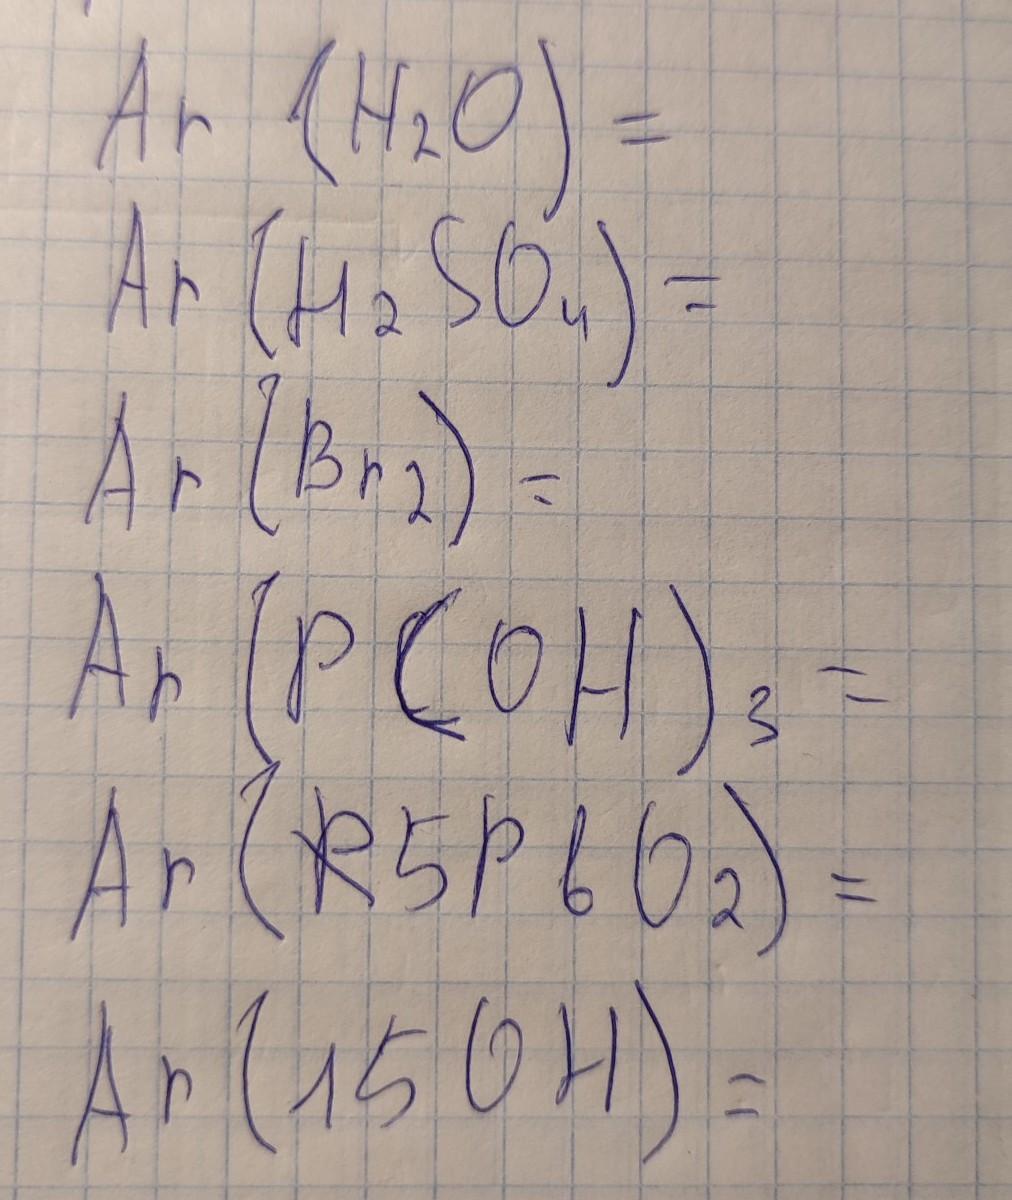 Ar (H₂O) =
Ar (H₂SO₄) =
Ar (Br₂) =
Ar (P(OH)₃ =
Ar (R5P6O₂) =
Ar (15OH) =